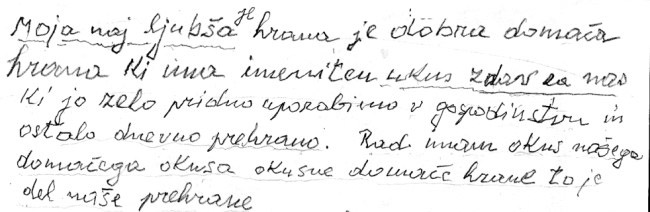 Moja naj ljubša je hrana je dobra domača
hrana ki ima imeniten ukus zdrav za nas
ki jo zelo pridno uporabimo v gospodinstvu in
ostalo dnevno prehrano. Rad imam okus našega
domačega okusa okusne domače hrane to je
del naše prehrane